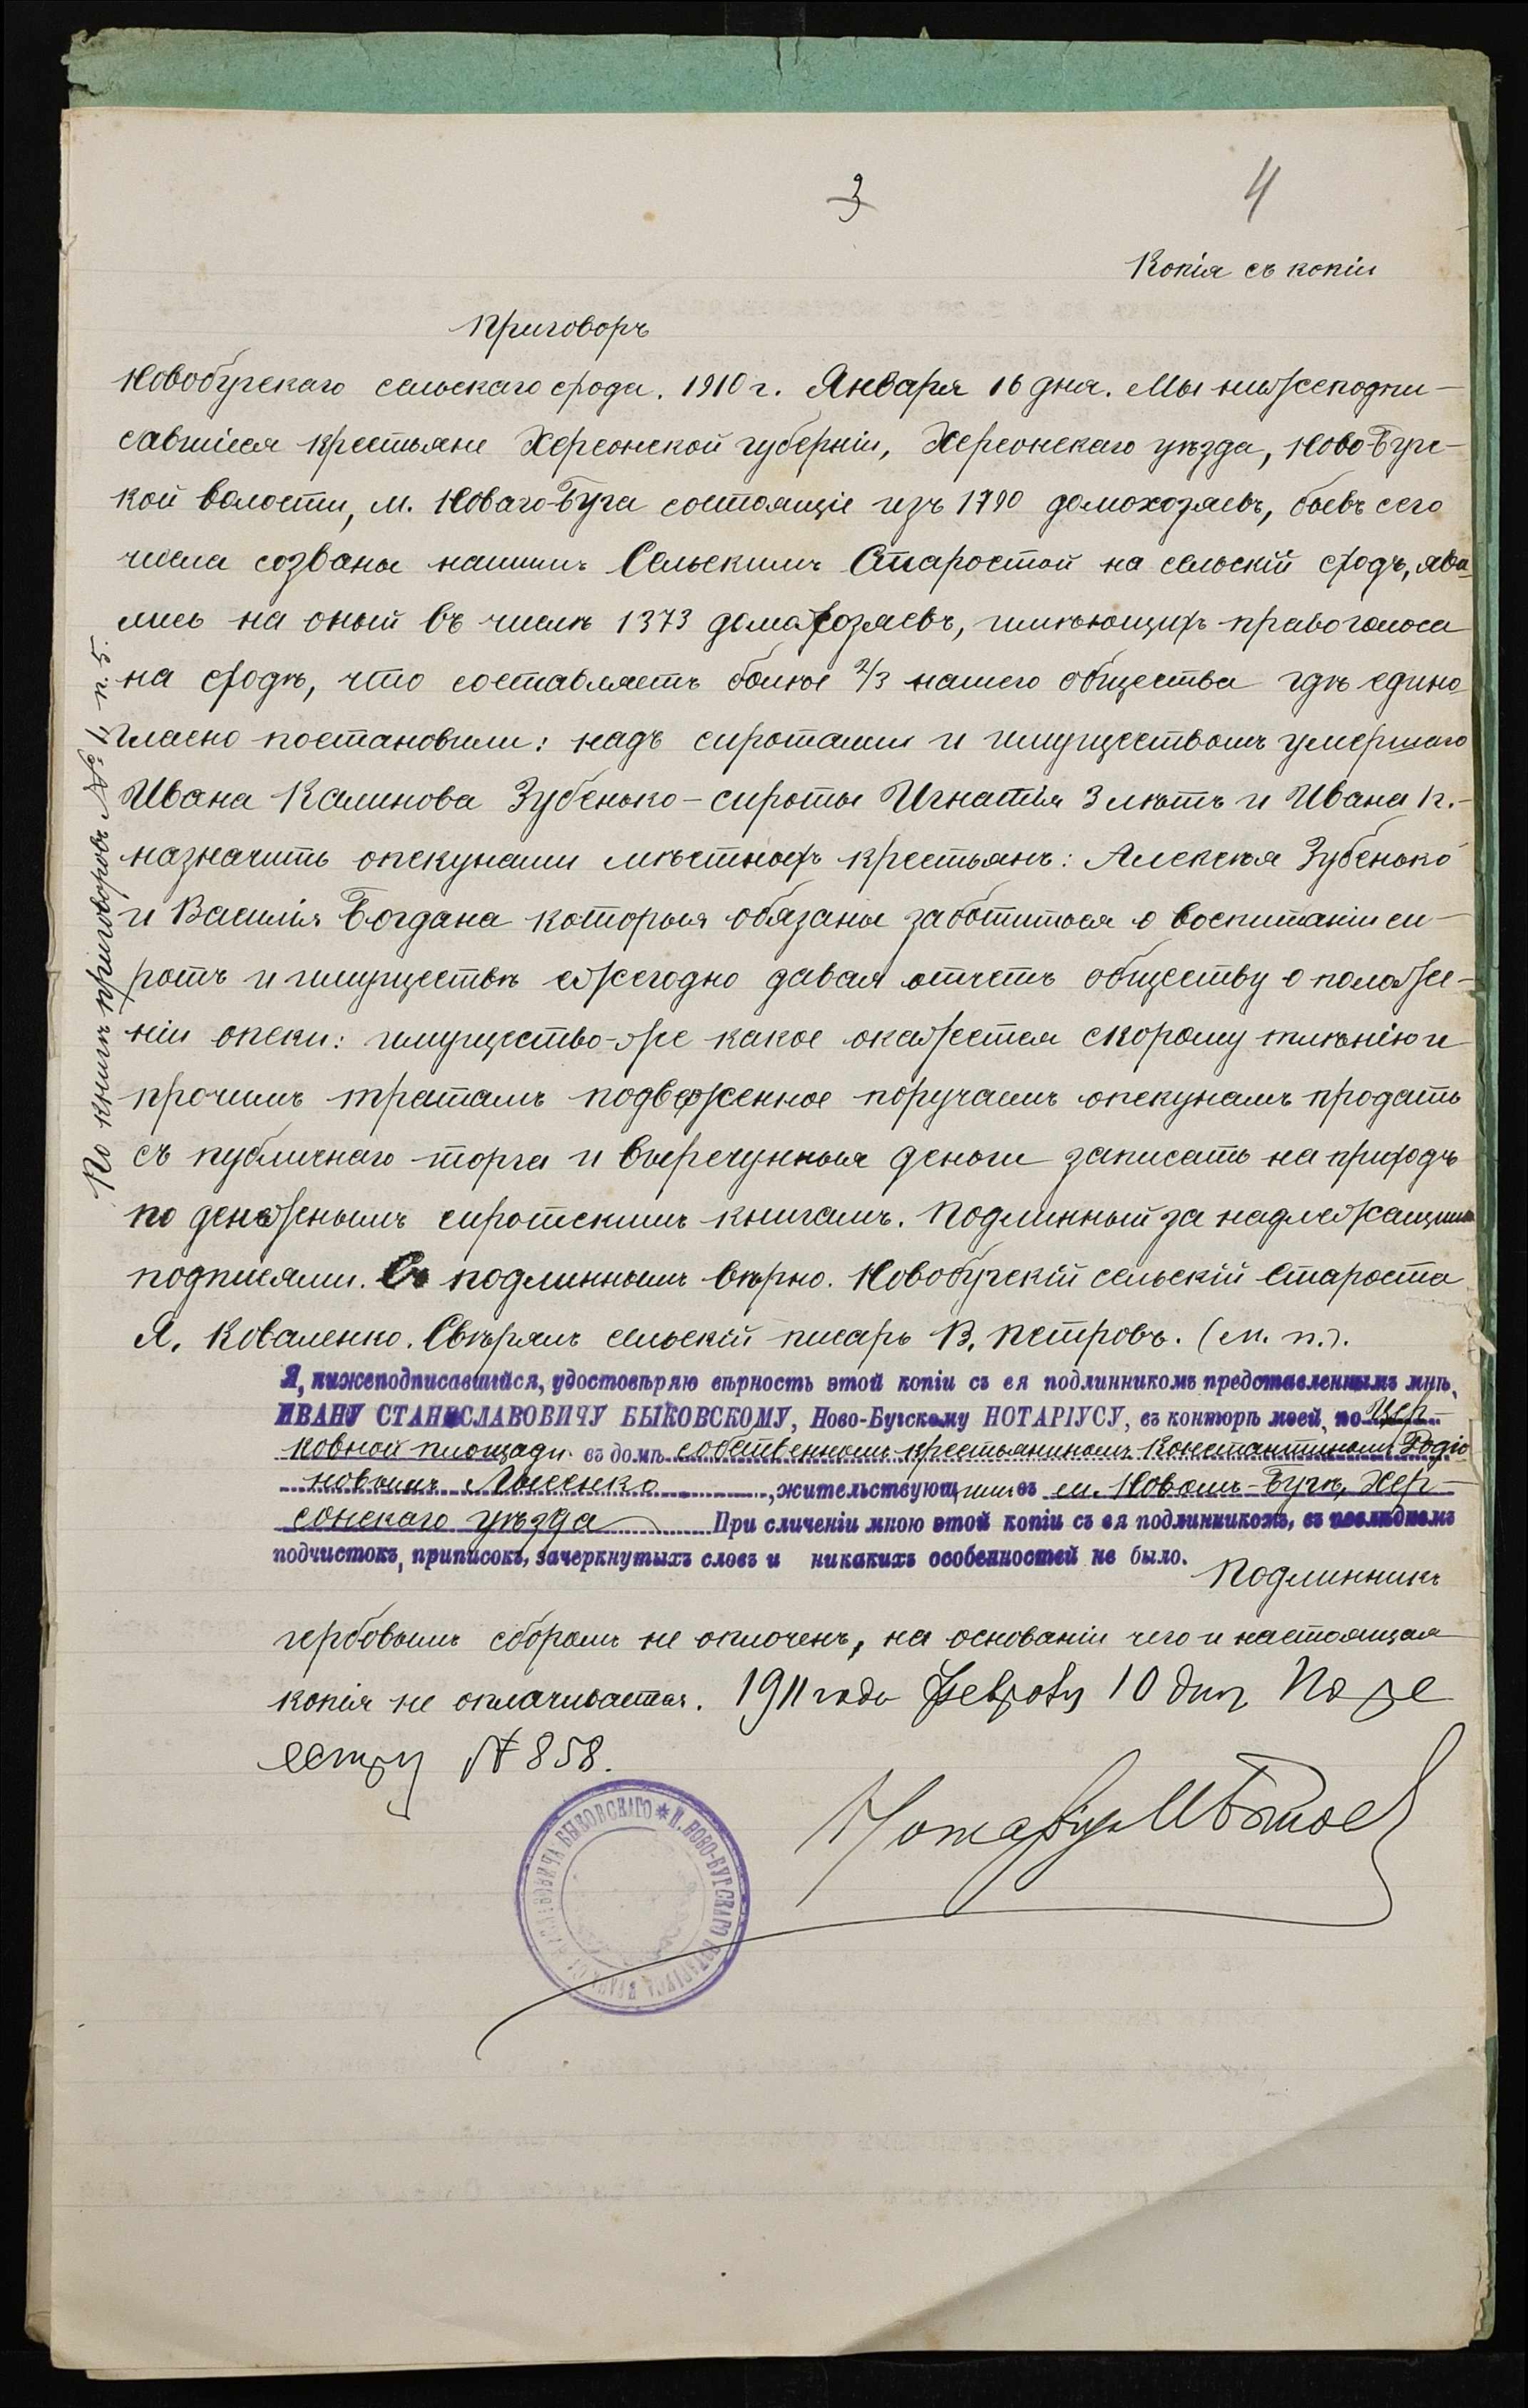 3
4
Копія съ копіи
Приговоръ
Новобугскаго сельскаго схода. 1910 г. Января 16 дня. Мы нижеподпи-
савшіеся крестьяне Херсонской губерніи, Херсонскаго уѣзда, Ново-Буг-
кой волости, м. Новаго-Буга состоящіе изъ 1790 домохозяевъ, бывъ сего
числа созваны нашимъ Сельскимъ Старостой на сельскій сходъ, яви-
лись на оный въ числѣ 1373 домахозяевъ, имѣющихъ право голоса
на сходѣ, что составляетъ болѣе 2/3 нашего общества гдѣ едино-
гласно постановили: надъ сиротами и имуществомъ умершаго
Ивана Калинова Зубенько - сироты Игнатія 3 лѣтъ и Ивана
назначить опекунами мѣстныхъ крестьянъ: Алексѣя Зубенько
и Василія Богдана которыя обязаны заботиться о воспитаніи си-
ротъ и имуществѣ ежегодно давая отчетъ обществу о положе-
ніи опеки: имущество-же какое окажется скорому тлѣнію и
прочимъ тратамъ подверженное поручаемъ опекунамъ продать
съ публичнаго торга и вырученныя деньги записать на приходъ
по денежнымъ сиротскимъ книгамъ. Подлинный за надлежащими
подписями. Съ подлиннымъ вѣрно. Новобугскій сельскій Староста
Я. Коваленко. Свѣрялъ сельскій писарь В. Петровъ. (м. п.).
По книгѣ приговоровъ № 1, п. 5.
Я, нижеподписавшійся, удостовѣряю вѣрность этой копіи съ ея подлинникомъ представленнымъ мнѣ,
ИВАНУ СТАНИСЛАВОВИЧУ БЫКОВСКОМУ, Ново-Бугскому НОТАРІУСУ, въ конторѣ моей, по Цер-
ковной площади въ домѣ собственномъ крестьяниномъ Константиномъ Родіо-
новымъ Лысенко, жительствующимъ въ м. Новомъ-Бугѣ, Хер-
сонскаго уѣзда При сличеніи мною этой копіи съ ея подлинникомъ, въ послѣднемъ
подчистокъ, приписокъ, зачеркнутыхъ словъ и никакихъ особенностей не было.
Подлинникъ
гербовымъ сборомъ не оплоченъ, на основаніи чего и настоящая
копія не оплачивается. 1911 года Февраля 10 дня По ре
естру № 858.
Нотаріусъ И Быков
И. НОВО-БУГСКАГО НОТАРІУСА ИВАНА СТАНИСЛАВОВИЧА БЫКОВСКАГО